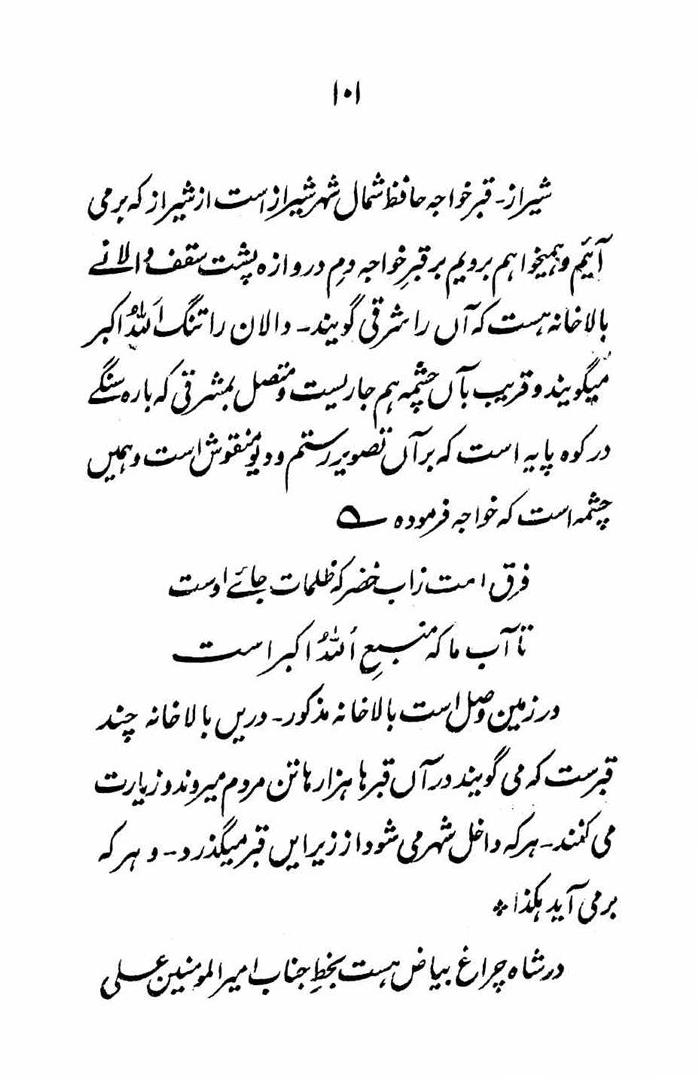 ۱۰۱
شیراز۔ قبر خواجہ حافظ شمال شہر شیراز است از شیراز کہ برمی
آئیم و ہمیخواہم برویم بر قبرِ خواجہ دمِ دروازہ پشت سقف دالانے
بالاخانہ ہست کہ آں را شرقی گویند۔ دالان را تنگ اَللہُ اکبر
میگویند و قریب بآں چشمہ ہم جاریست و متصل بمشرقی کہ بارہ سنگے
در کوہ پایہ است کہ برآں تصویر رستم و دیو منقوش است و ہمیں
چشمہ است کہ خواجہ فرمودہ ؎
فرق است ز آب خضر کہ ظلمات جائے اوست
تا آب ما کہ منبعِ اَللہُ اکبر است
در زمین وصل است بالاخانہ مذکور۔ دریں بالاخانہ چند
قبرست کہ می گویند در آں قبرہا ہزارہا تن مردم میروند و زیارت
می کنند۔ ہر کہ داخل شہر می شود از زیر ایں قبر میگذرد۔ و ہر کہ
برمی آید ہکذا *
در شاہ چراغ بیاض ہست بخطِ جناب امیر المومنین علی